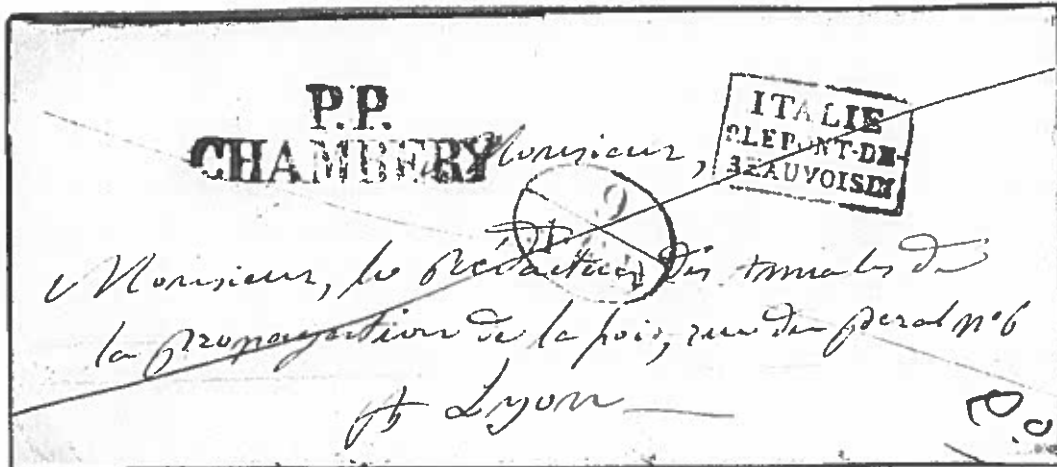 P.P.
CHAMBERY
ITALIE
P. LE PONT-DE-
BEAUVOISIN
Monsieur,
9
Monsieur, le Rédacteur des annales de
la propagation de la foi, rue du perat nº 6
à Lyon
P.P.